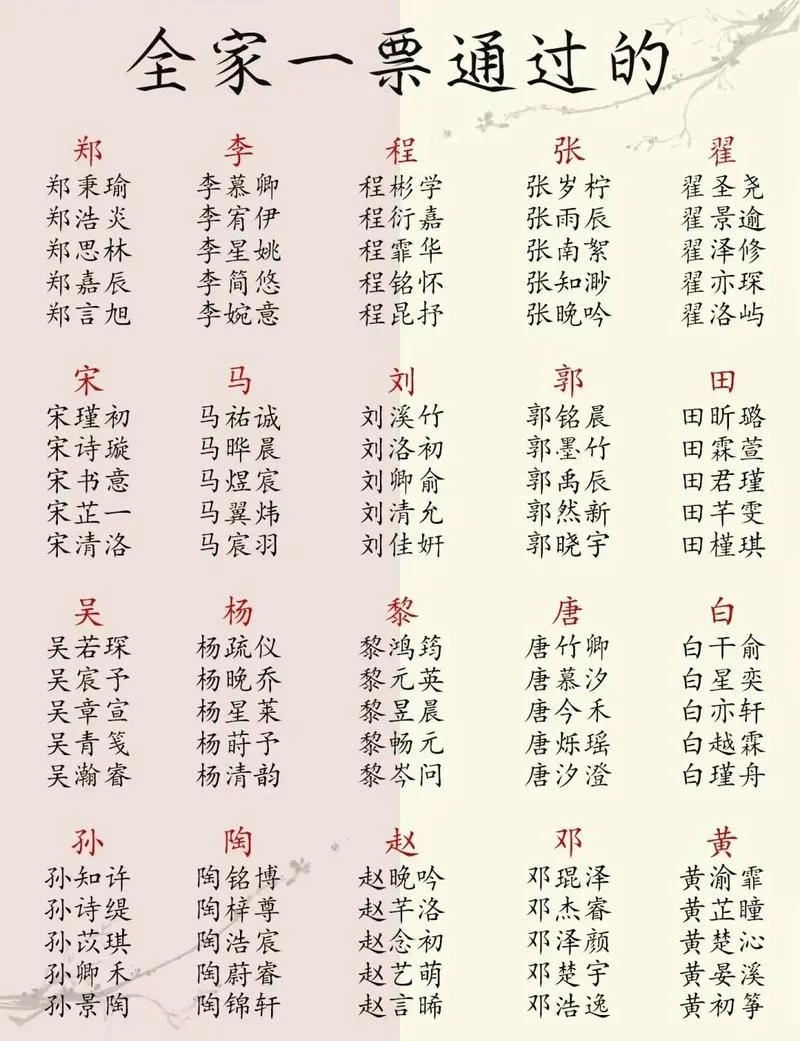 全家一票通过的
郑 李 程 张 翟
郑秉瑜 李慕卿 程彬学 张岁柠 翟圣尧
郑浩炎 李宥伊 程衍嘉 张雨辰 翟景逾
郑思林 李星姚 程霏华 张南絮 翟泽修
郑嘉辰 李简悠 程铭怀 张知渺 翟亦琛
郑言旭 李婉意 程昆抒 张晚吟 翟洛屿
宋 马 刘 郭 田
宋瑾初 马祐诚 刘溪竹 郭铭晨 田昕璐
宋诗璇 马晔晨 刘洛初 郭墨竹 田霖萱
宋书意 马煜宸 刘卿俞 郭禹辰 田君瑾
宋芷一 马翼炜 刘清允 郭然新 田芊雯
宋清洛 马宸羽 刘佳妍 郭晓宇 田槿琪
吴 杨 黎 唐 白
吴若琛 杨疏仪 黎鸿筠 唐竹卿 白干俞
吴宸予 杨晚乔 黎元英 唐慕汐 白星奕
吴章宣 杨星莱 黎昱晨 唐今禾 白亦轩
吴青笺 杨莳予 黎畅元 唐烁瑶 白越霖
吴瀚睿 杨清韵 黎岑问 唐汐澄 白瑾舟
孙 陶 赵 邓 黄
孙知许 陶铭博 赵晚吟 邓琨泽 黄渝霏
孙诗缇 陶梓尊 赵芊洛 邓杰睿 黄芷瞳
孙苡琪 陶浩宸 赵念初 邓泽颜 黄楚沁
孙卿禾 陶蔚睿 赵艺萌 邓楚宇 黄晏溪
孙景陶 陶锦轩 赵言晞 邓浩逸 黄初筝